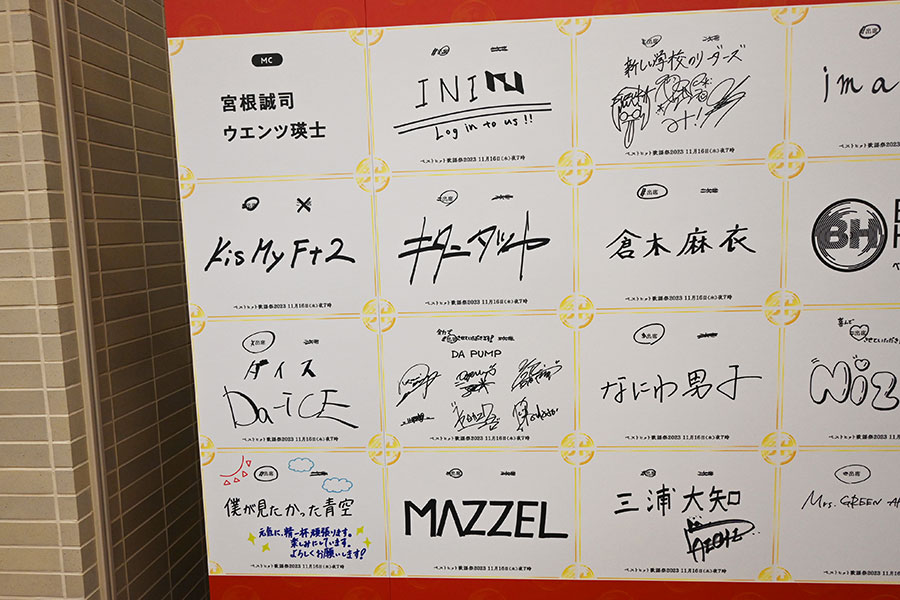 MC
宮根誠司
ウエンツ瑛士
出席
INI
Log in to us!!
ベストヒット歌謡祭2023 11月16日(木)夜7時
出席
新しい学校のリーダーズ
ベストヒット歌謡祭2023 11月16日(木)夜7時
出席
ima
Kis My Ft2
ベストヒット歌謡祭2023 11月16日(木)夜7時
出席
キタニタツヤ
ベストヒット歌謡祭2023 11月16日(木)夜7時
出席
倉木麻衣
ベストヒット歌謡祭2023 11月16日(木)夜7時
BH
出席
ダイス
Da-iCE
ベストヒット歌謡祭2023 11月16日(木)夜7時
出席
DA PUMP
ベストヒット歌謡祭2023 11月16日(木)夜7時
出席
なにわ男子
ベストヒット歌謡祭2023 11月16日(木)夜7時
喜んで
出席 させていただき
Niz
出席
僕が見たかった青空
元気に、精一杯頑張ります。
楽しみにしています。
よろしくお願いします!
ベストヒット歌謡祭2023 11月16日(木)夜7時
出席
MAZZEL
ベストヒット歌謡祭2023 11月16日(木)夜7時
出席
三浦大知
ベストヒット歌謡祭2023 11月16日(木)夜7時
出席
Mrs. GREEN A
ベストヒット歌謡祭